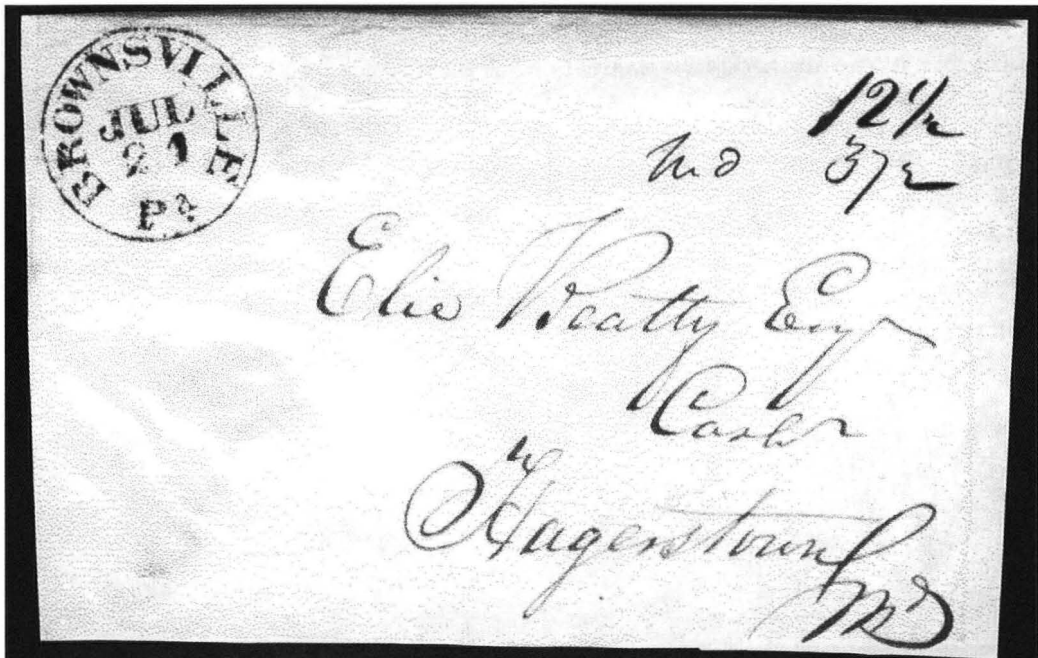 BROWNSVILLE
JUL
21
Pa
12½
Md 37½
Elie Beatty Esqr
Cashr
Hagerstown
Md